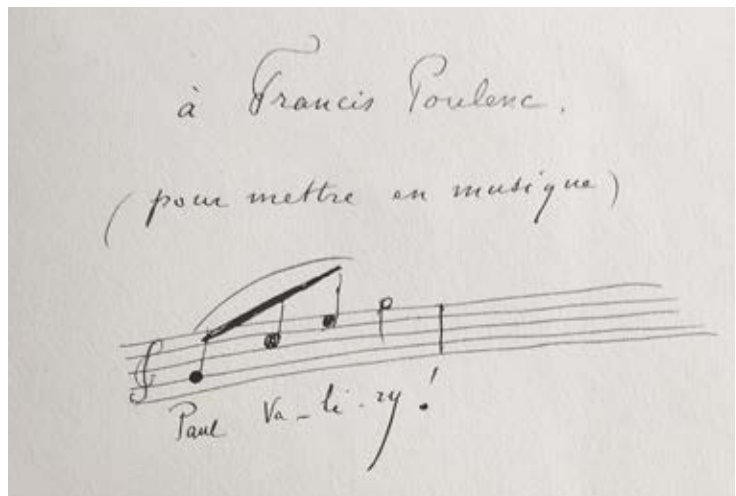 à Francis Poulenc.
(pour mettre en musique)
Paul Va-lé-ry!